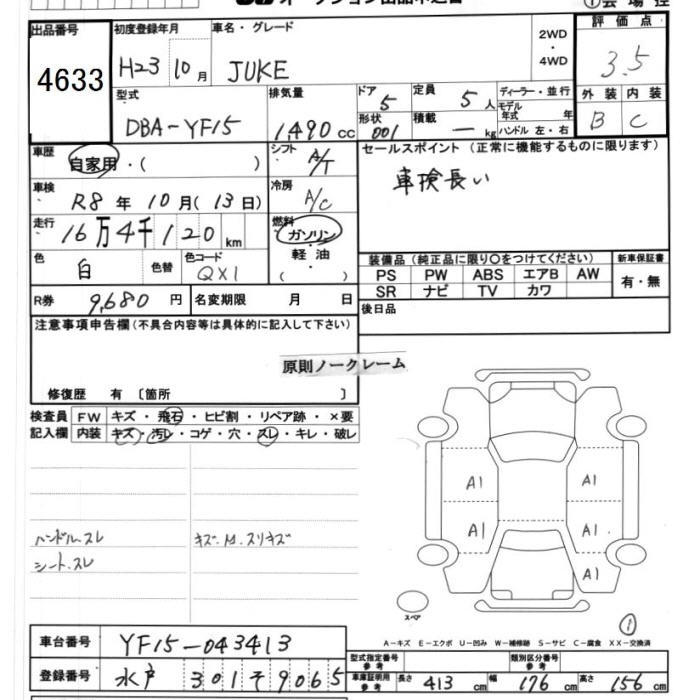 出品番号 4633
初度登録年月 H23 10月
車名・グレード JUKE
2WD・4WD
評価点 3.5
外装 B 内装 C
型式 DBA-YF15
排気量 1,490 cc
ドア 5 形状 001
定員 5人 積載 — kg
ディーラー・並行
モデル年式 年
ハンドル 左・右
車歴 自家用・( )
シフト A/T
セールスポイント(正常に機能するものに限ります)
車検長い
車検 R8年 10月(13日)
冷房 A/C
走行 16万4千120km
燃料 ガソリン・軽油・( )
色 白 色替 色コード QX1
装備品(純正品に限り〇をつけてください) 新車保証書
PS PW ABS エアB AW 有・無
SR ナビ TV カワ
R券 9,680円 名変期限 月 日
後日品
注意事項申告欄(不具合内容等は具体的に記入して下さい)
原則ノークレーム
修復歴 有〔箇所 〕
検査員 FW キズ・飛石・ヒビ割・リペア跡・×要
記入欄 内装 キズ・汚レ・コゲ・穴・スレ・キレ・破レ
A1 A1
A1 A1
A1
ハンドル.スレ キズ.M.スリキズ
シート.スレ
スペア
①
A-キズ E-エクボ U-凹み W-補修跡 S-サビ C-腐食 XX-交換済
車台番号 YF15-043413
登録番号 水戸 301 そ 9065
型式指定番号 参考 類別区分番号 参考
車庫証明用 参考 長さ 413cm 幅 176cm 高さ 156cm